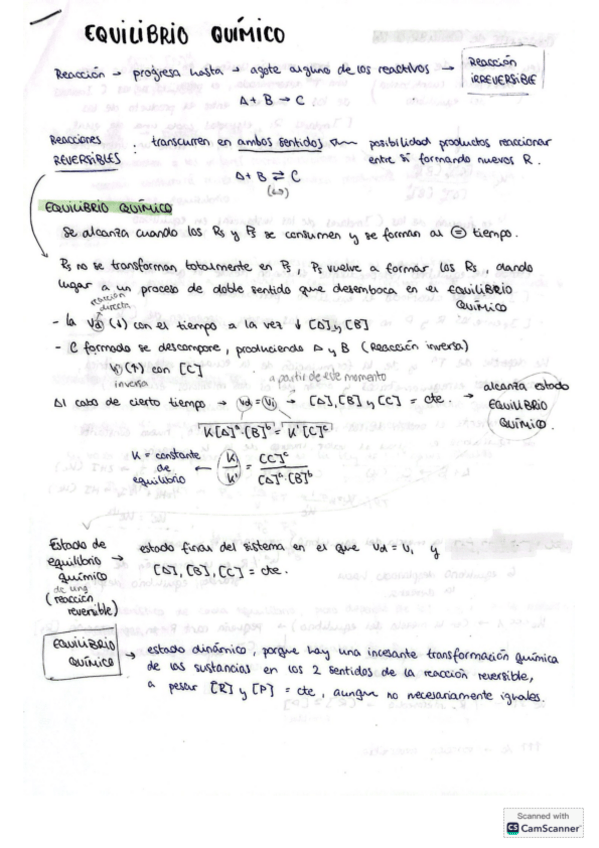 EQUILIBRIO QUÍMICO
Reacción → progresa hasta → agote alguno de los reactivos → Reacción IRREVERSIBLE
A + B → C
Reacciones REVERSIBLES : transcurren en ambos sentidos posibilidad productos reaccionar
entre sí formando nuevos R.
A + B ⇄ C
(↔)
EQUILIBRIO QUÍMICO
Se alcanza cuando los Rs y Ps se consumen y se forman al = tiempo.
Rs no se transforman totalmente en Ps, Ps vuelve a formar los Rs, dando
lugar a un proceso de doble sentido que desemboca en el EQUILIBRIO
QUÍMICO
reacción directa
- la Vd (↓) con el tiempo a la vez ↓ [A] y [B]
- C formado se descompone, produciendo A y B (Reacción inversa)
Vi (↑) con [C]
inversa
a partir de este momento
Al cabo de cierto tiempo → Vd = Vi → [A], [B] y [C] = cte. → alcanza estado
EQUILIBRIO
QUÍMICO.
K[A]ᵃ·[B]ᵇ = K'[C]ᶜ
K = constante de equilibrio ← K/K' = [C]ᶜ/[A]ᵃ·[B]ᵇ
Estado de equilibrio químico → estado final del sistema en el que Vd = Vi y
[A], [B], [C] = cte.
(de una reacción reversible)
EQUILIBRIO QUÍMICO → estado dinámico, porque hay una incesante transformación química
de las sustancias en los 2 sentidos de la reacción reversible,
a pesar [R] y [P] = cte, aunque no necesariamente iguales.
Scanned with
CS CamScanner